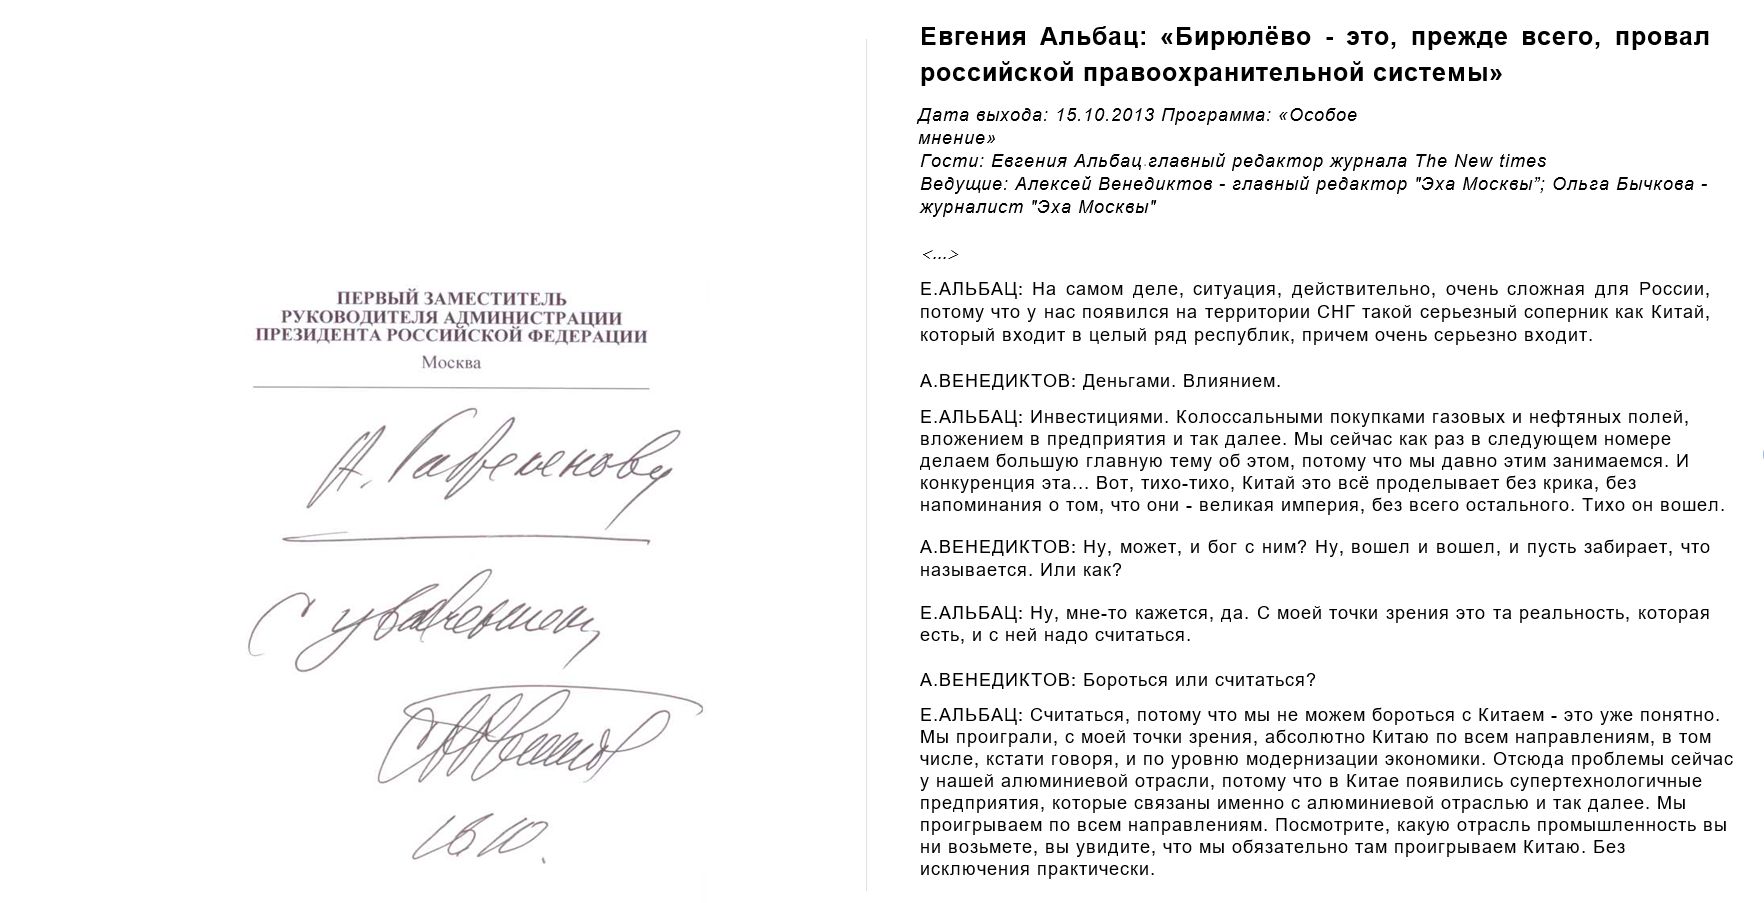 ПЕРВЫЙ ЗАМЕСТИТЕЛЬ
РУКОВОДИТЕЛЯ АДМИНИСТРАЦИИ
ПРЕЗИДЕНТА РОССИЙСКОЙ ФЕДЕРАЦИИ
Москва
А.
С уважением,
16.10.
Евгения Альбац: «Бирюлёво - это, прежде всего, провал
российской правоохранительной системы»
Дата выхода: 15.10.2013 Программа: «Особое
мнение»
Гости: Евгения Альбац главный редактор журнала The New times
Ведущие: Алексей Венедиктов - главный редактор "Эха Москвы”; Ольга Бычкова -
журналист "Эха Москвы"
<...>
Е.АЛЬБАЦ: На самом деле, ситуация, действительно, очень сложная для России,
потому что у нас появился на территории СНГ такой серьезный соперник как Китай,
который входит в целый ряд республик, причем очень серьезно входит.
А.ВЕНЕДИКТОВ: Деньгами. Влиянием.
Е.АЛЬБАЦ: Инвестициями. Колоссальными покупками газовых и нефтяных полей,
вложением в предприятия и так далее. Мы сейчас как раз в следующем номере
делаем большую главную тему об этом, потому что мы давно этим занимаемся. И
конкуренция эта... Вот, тихо-тихо, Китай это всё проделывает без крика, без
напоминания о том, что они - великая империя, без всего остального. Тихо он вошел.
А.ВЕНЕДИКТОВ: Ну, может, и бог с ним? Ну, вошел и вошел, и пусть забирает, что
называется. Или как?
Е.АЛЬБАЦ: Ну, мне-то кажется, да. С моей точки зрения это та реальность, которая
есть, и с ней надо считаться.
А.ВЕНЕДИКТОВ: Бороться или считаться?
Е.АЛЬБАЦ: Считаться, потому что мы не можем бороться с Китаем - это уже понятно.
Мы проиграли, с моей точки зрения, абсолютно Китаю по всем направлениям, в том
числе, кстати говоря, и по уровню модернизации экономики. Отсюда проблемы сейчас
у нашей алюминиевой отрасли, потому что в Китае появились супертехнологичные
предприятия, которые связаны именно с алюминиевой отраслью и так далее. Мы
проигрываем по всем направлениям. Посмотрите, какую отрасль промышленность вы
ни возьмете, вы увидите, что мы обязательно там проигрываем Китаю. Без
исключения практически.